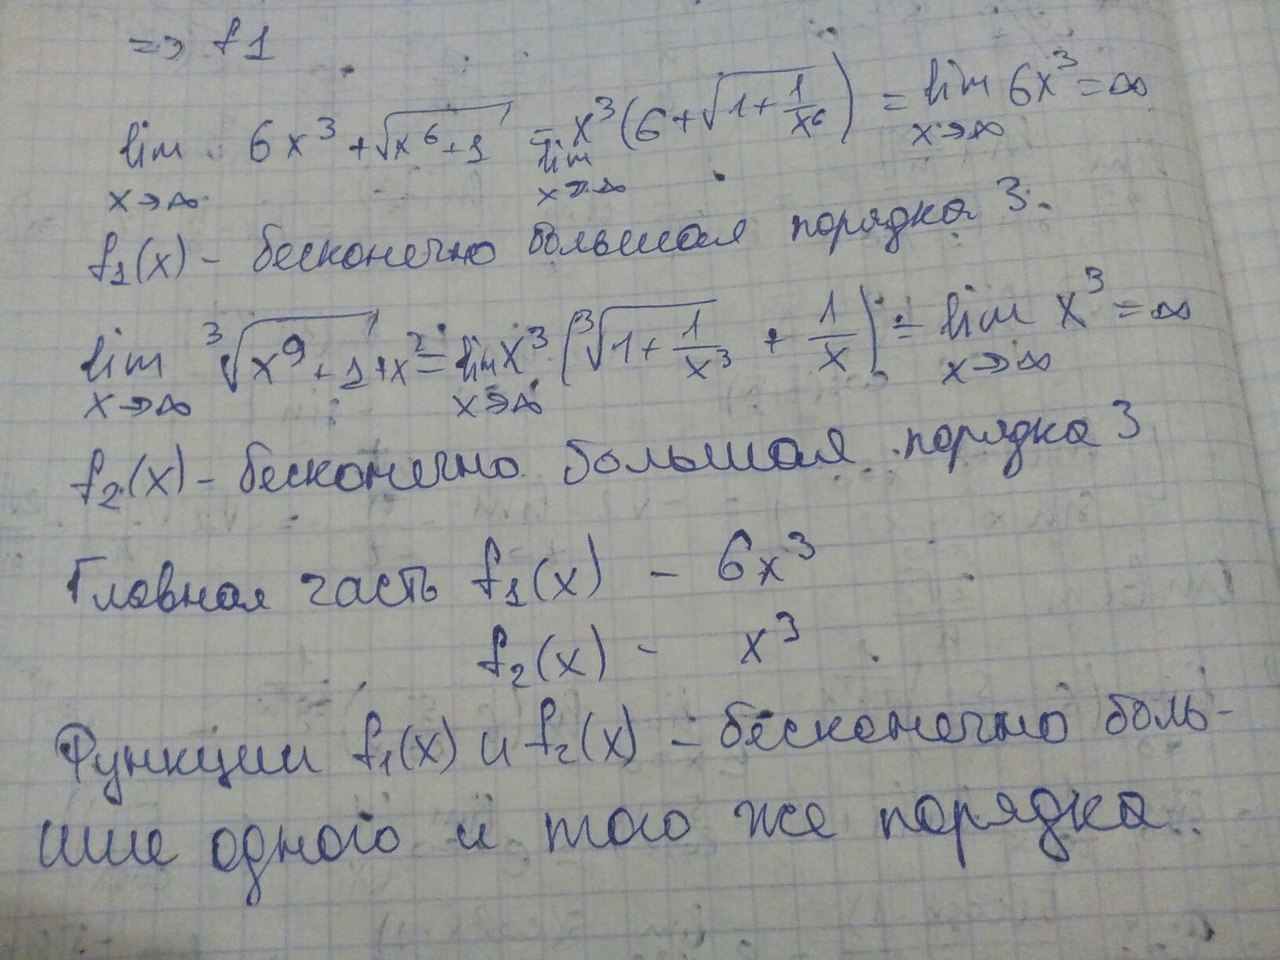 => f1
lim x→∞ 6x³ + √(x⁶+1) = lim x→∞ x³(6+√(1+1/x⁶)) = lim x→∞ 6x³ = ∞
f₁(x) - бесконечно большая порядка 3.
lim x→∞ ³√(x⁹+1) + x² = lim x→∞ x³(³√(1+1/x³) + 1/x) = lim x→∞ x³ = ∞
f₂(x) - бесконечно большая порядка 3
Главная часть f₁(x) - 6x³
f₂(x) - x³
Функции f₁(x) и f₂(x) - бесконечно боль-
шие одного и того же порядка.